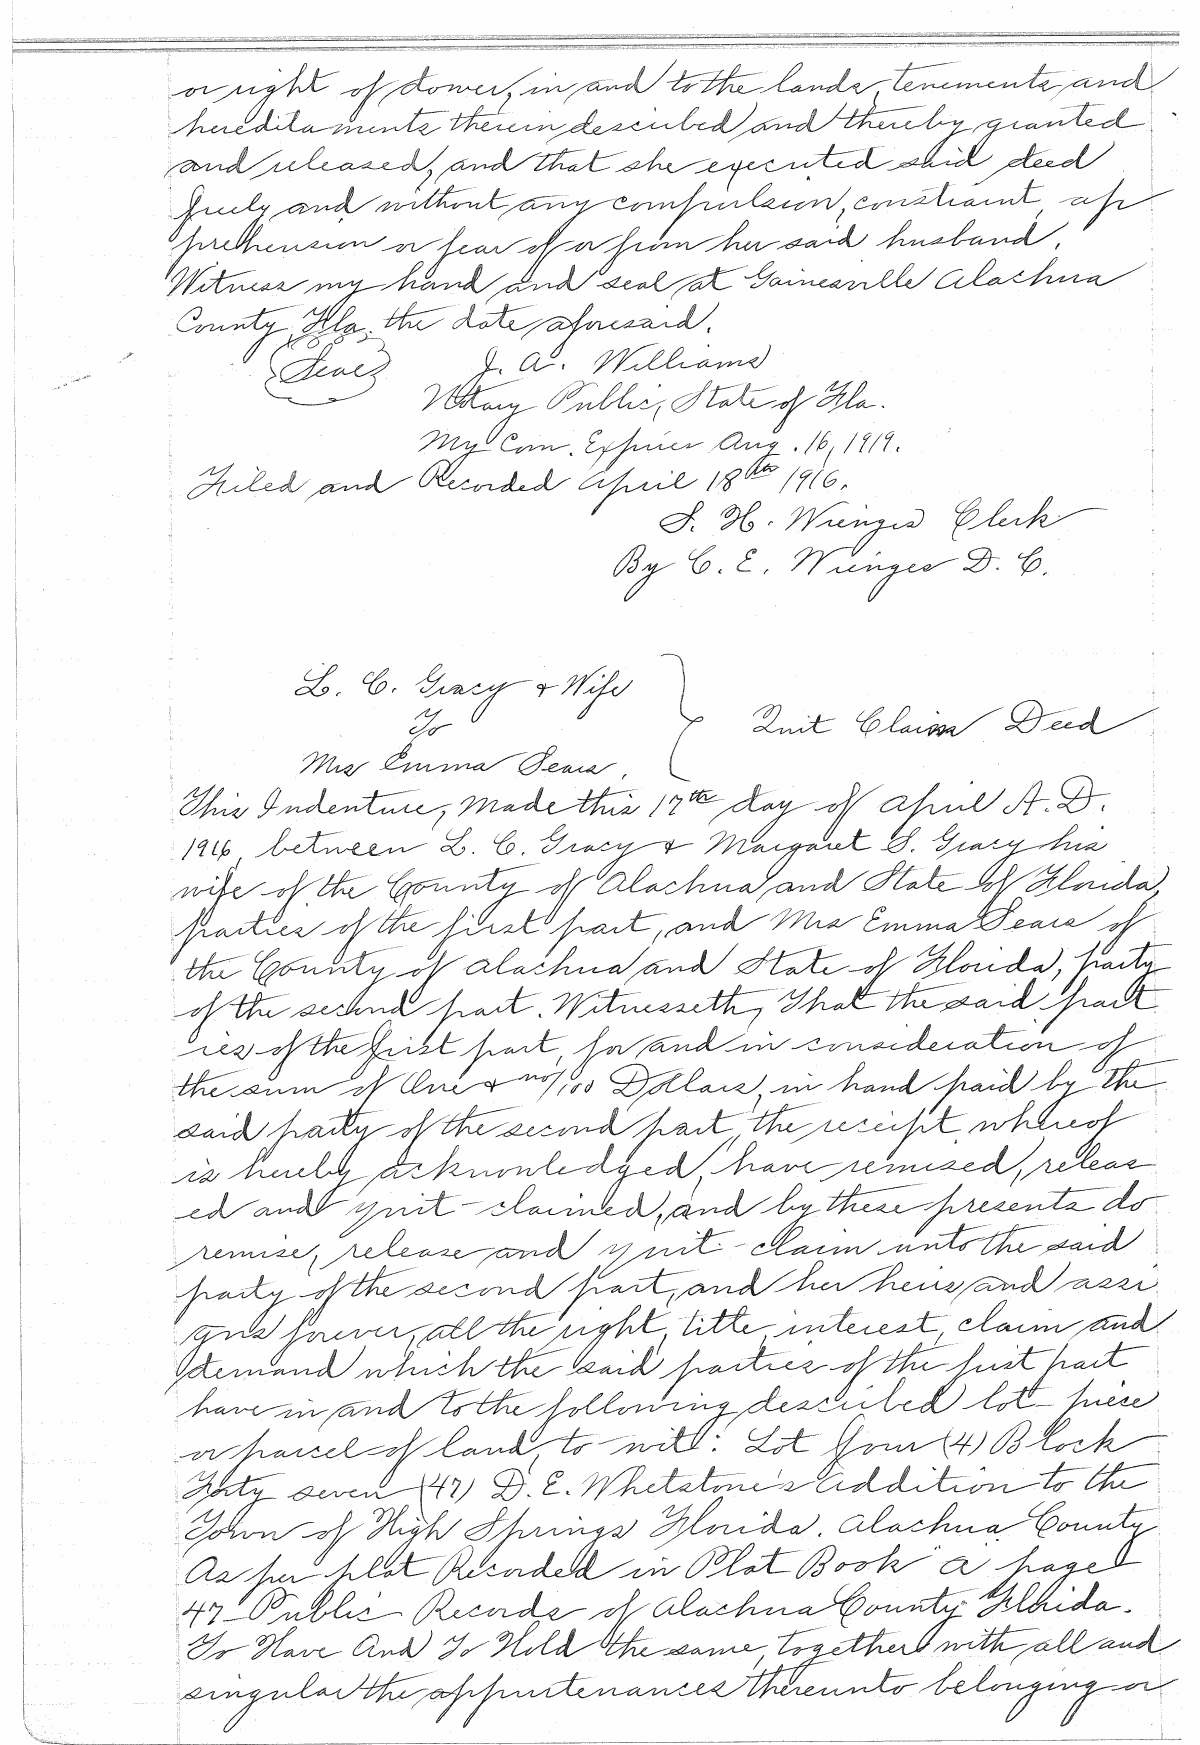 or right of dower, in and to the lands, tenements and
heredita ments therein described and thereby granted
and released, and that she executed said deed
freely and without any compulsion, constraint, ap
prehension or fear of or from her said husband.
Witness my hand and seal at Gainesville Alachua
County, Fla, the date aforesaid.
(Seal) J. A. Williams
Notary Public, State of Fla.
My Com. Expires Aug. 16, 1919.
Filed and Recorded April 18th 1916.
S. H. Wienges Clerk
By C. E. Wienges D. C.
L. C. Gracy & Wife
To
Quit Claim Deed
Mrs Emma Sears.
This Indenture, Made this 17th day of April A. D.
1916, between L. C. Gracy & Margaret S. Gracy his
wife of the County of Alachua and State of Florida,
parties of the first part, and Mrs Emma Sears of
the County of Alachua and State of Florida, party
of the second part. Witnesseth, That the said part
ies of the first part, for and in consideration of
the sum of One & no/100 Dollars, in hand paid by the
said party of the second part, the receipt whereof
is hereby acknowledged, have remised, releas
ed and quit-claimed, and by these presents do
remise, release and quit-claim unto the said
party of the second part, and her heirs and assi
gns forever, all the right, title, interest, claim and
demand which the said parties of the first part
have in and to the following described lot- piece
or parcel of land, to wit: Lot Four (4) Block
Forty seven (47) D. E. Whetstone's Addition to the
Town of High Springs Florida. Alachua County
As per plat Recorded in Plat Book "A" page
47- Public Records of Alachua County Florida.
To Have And To Hold the same, together with all and
singular the appurtenances thereunto belonging or